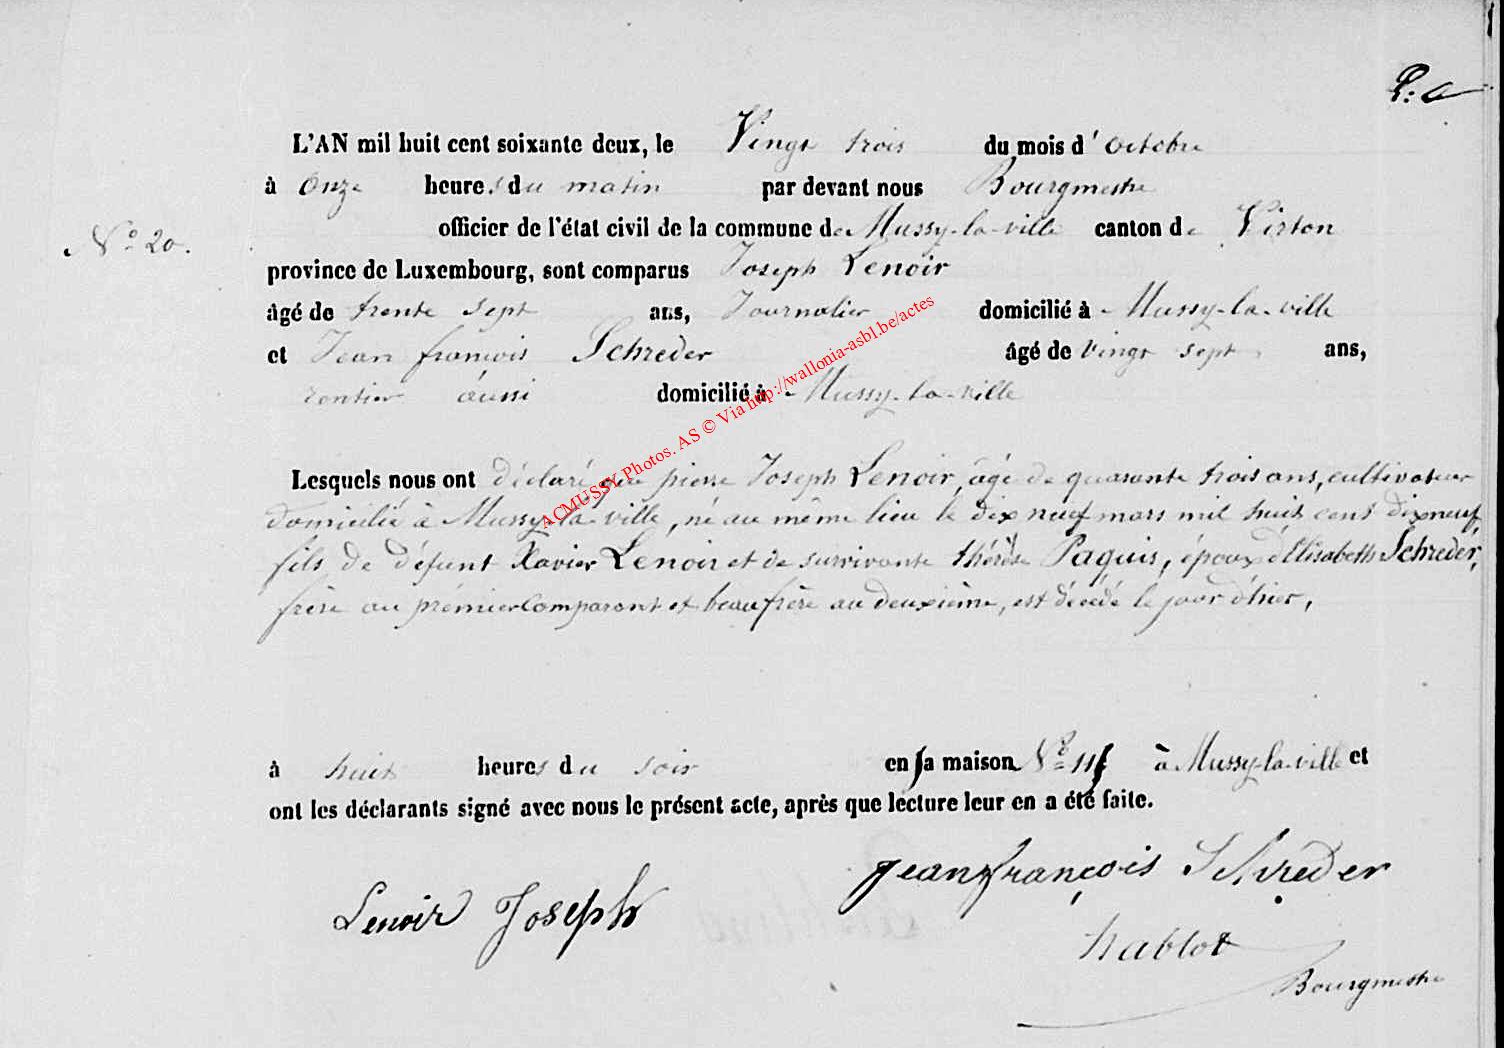 P: a
L'AN mil huit cent soixante deux, le Vingt trois du mois d' octobre
à Onze heures du matin par devant nous Bourgmestre
officier de l'état civil de la commune de Mussy-la-ville canton de Virton
N° 20.
province de Luxembourg, sont comparus Joseph Lenoir
âgé de trente sept ans, Journalier domicilié à Mussy-la-ville
et Jean françois Schreder âgé de vingt sept ans,
rentier aussi domicilié à Mussy-la-ville
ACMUSSY Photos. AS © Via http://wallonia-asbl.be/actes
Lesquels nous ont déclaré que pierre Joseph Lenoir, âgé de quarante trois ans, cultivateur
domicilié à Mussy-la-ville, né au même lieu le dix neuf mars mil huit cent dix neuf,
fils de défunt Xavier Lenoir et de survivante thérèse Paquis, époux d'Elisabeth Schreder,
frère au prémier Comparant et beau frère au deuxième, est décédé le jour d'hier,
à huit heures du soir en sa maison N° 115 à Mussy-la-ville et
ont les déclarants signé avec nous le présent acte, après que lecture leur en a été faite.
jean françois Schreder
Lenoir Joseph
hablot
Bourgmestre